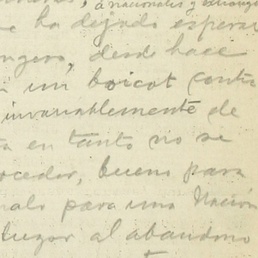 a nacionales y
ha dejado esperar
ngero, desde hace
un boicot contr
invariablemente de
ta en tanto no se
oceder, bueno para
malo para una Nación
lugar al abandono